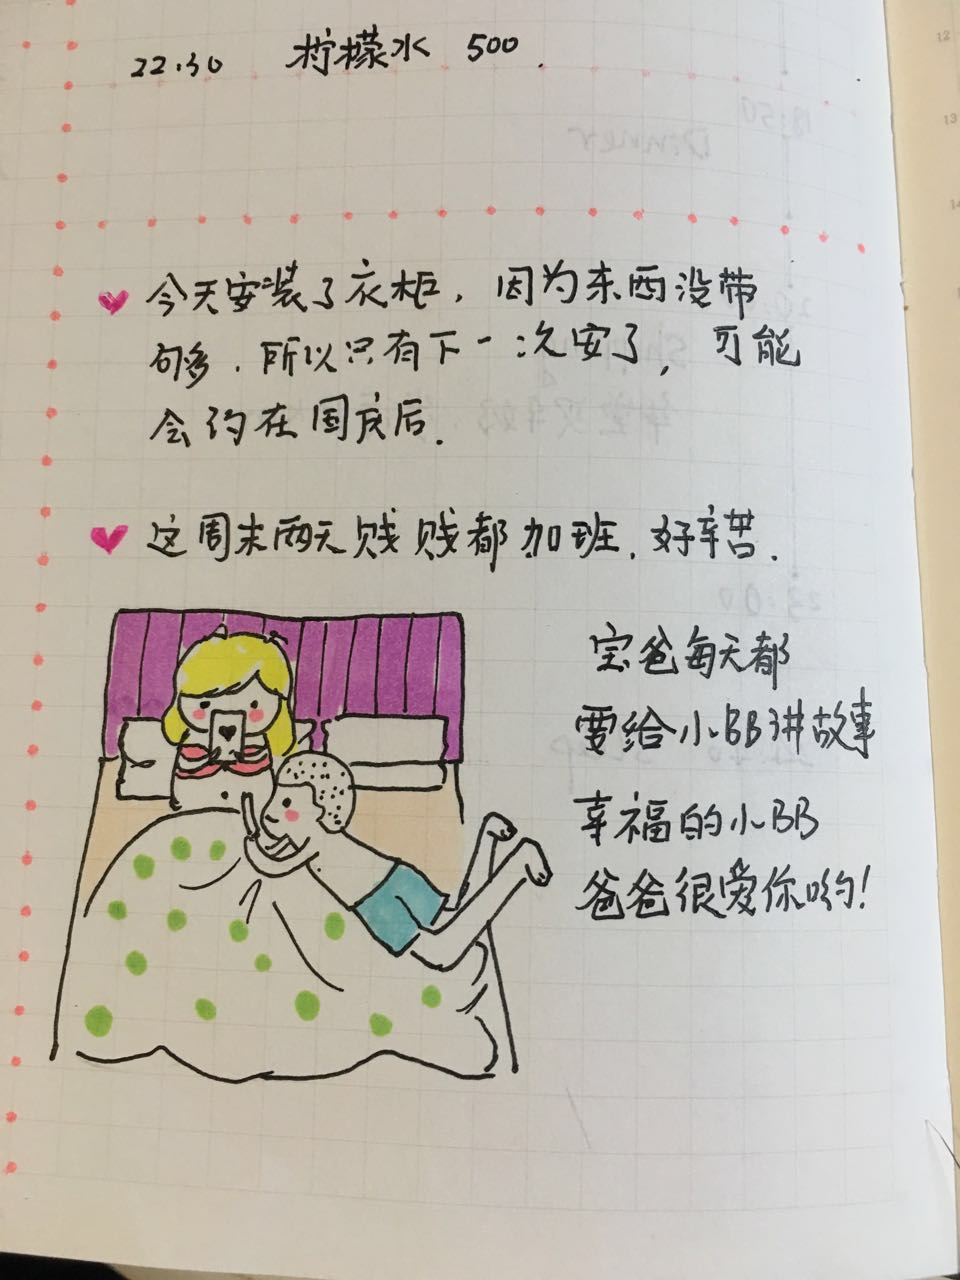 22:30 柠檬水 500.
今天安装了衣柜，因为东西没带
够多，所以只有下一次安了，可能
会约在国庆后.
这周末两天贱贱都加班，好辛苦.
宝爸每天都
要给小BB讲故事
幸福的小BB
爸爸很爱你哟!
Dinner
18:50
23:00
12
13